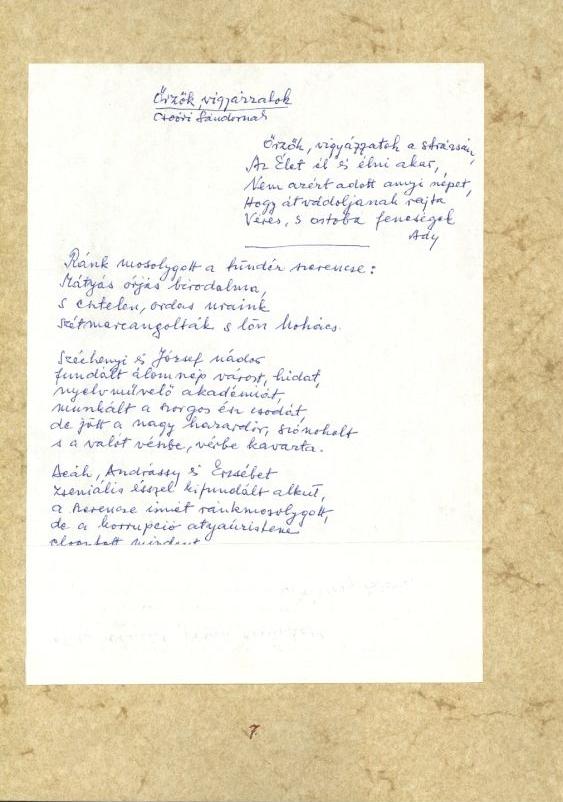 Őrzők, vigyázzatok
Csoóri Sándornak
Őrzők, vigyázzatok a strázsán,
Az Élet él és élni akar,
Nem azért adott annyi népet,
Hogy átvádoljanak rajta
Véres, s ostoba feneségek
Ady
Ránk mosolygott a tündér szerencse:
Mátyás órjás birodalma,
s esztelen, ordas uraink
szétmarcangolták s lőn Mohács.
Széchenyi és József nádor
fundált álomnép várost, hidat,
nyelvművelő akadémiát,
munkált a szorgos ész csodát,
de jött a nagy hazardőr, szónokolt
s a valót vérbe, vérbe kavarta.
Deák, Andrássy és Erzsébet
zseniális ésszel kifundált alkut,
a szerencse ismét ránkmosolygott,
de a korrupció atyaúristene
elrontott mindent
7